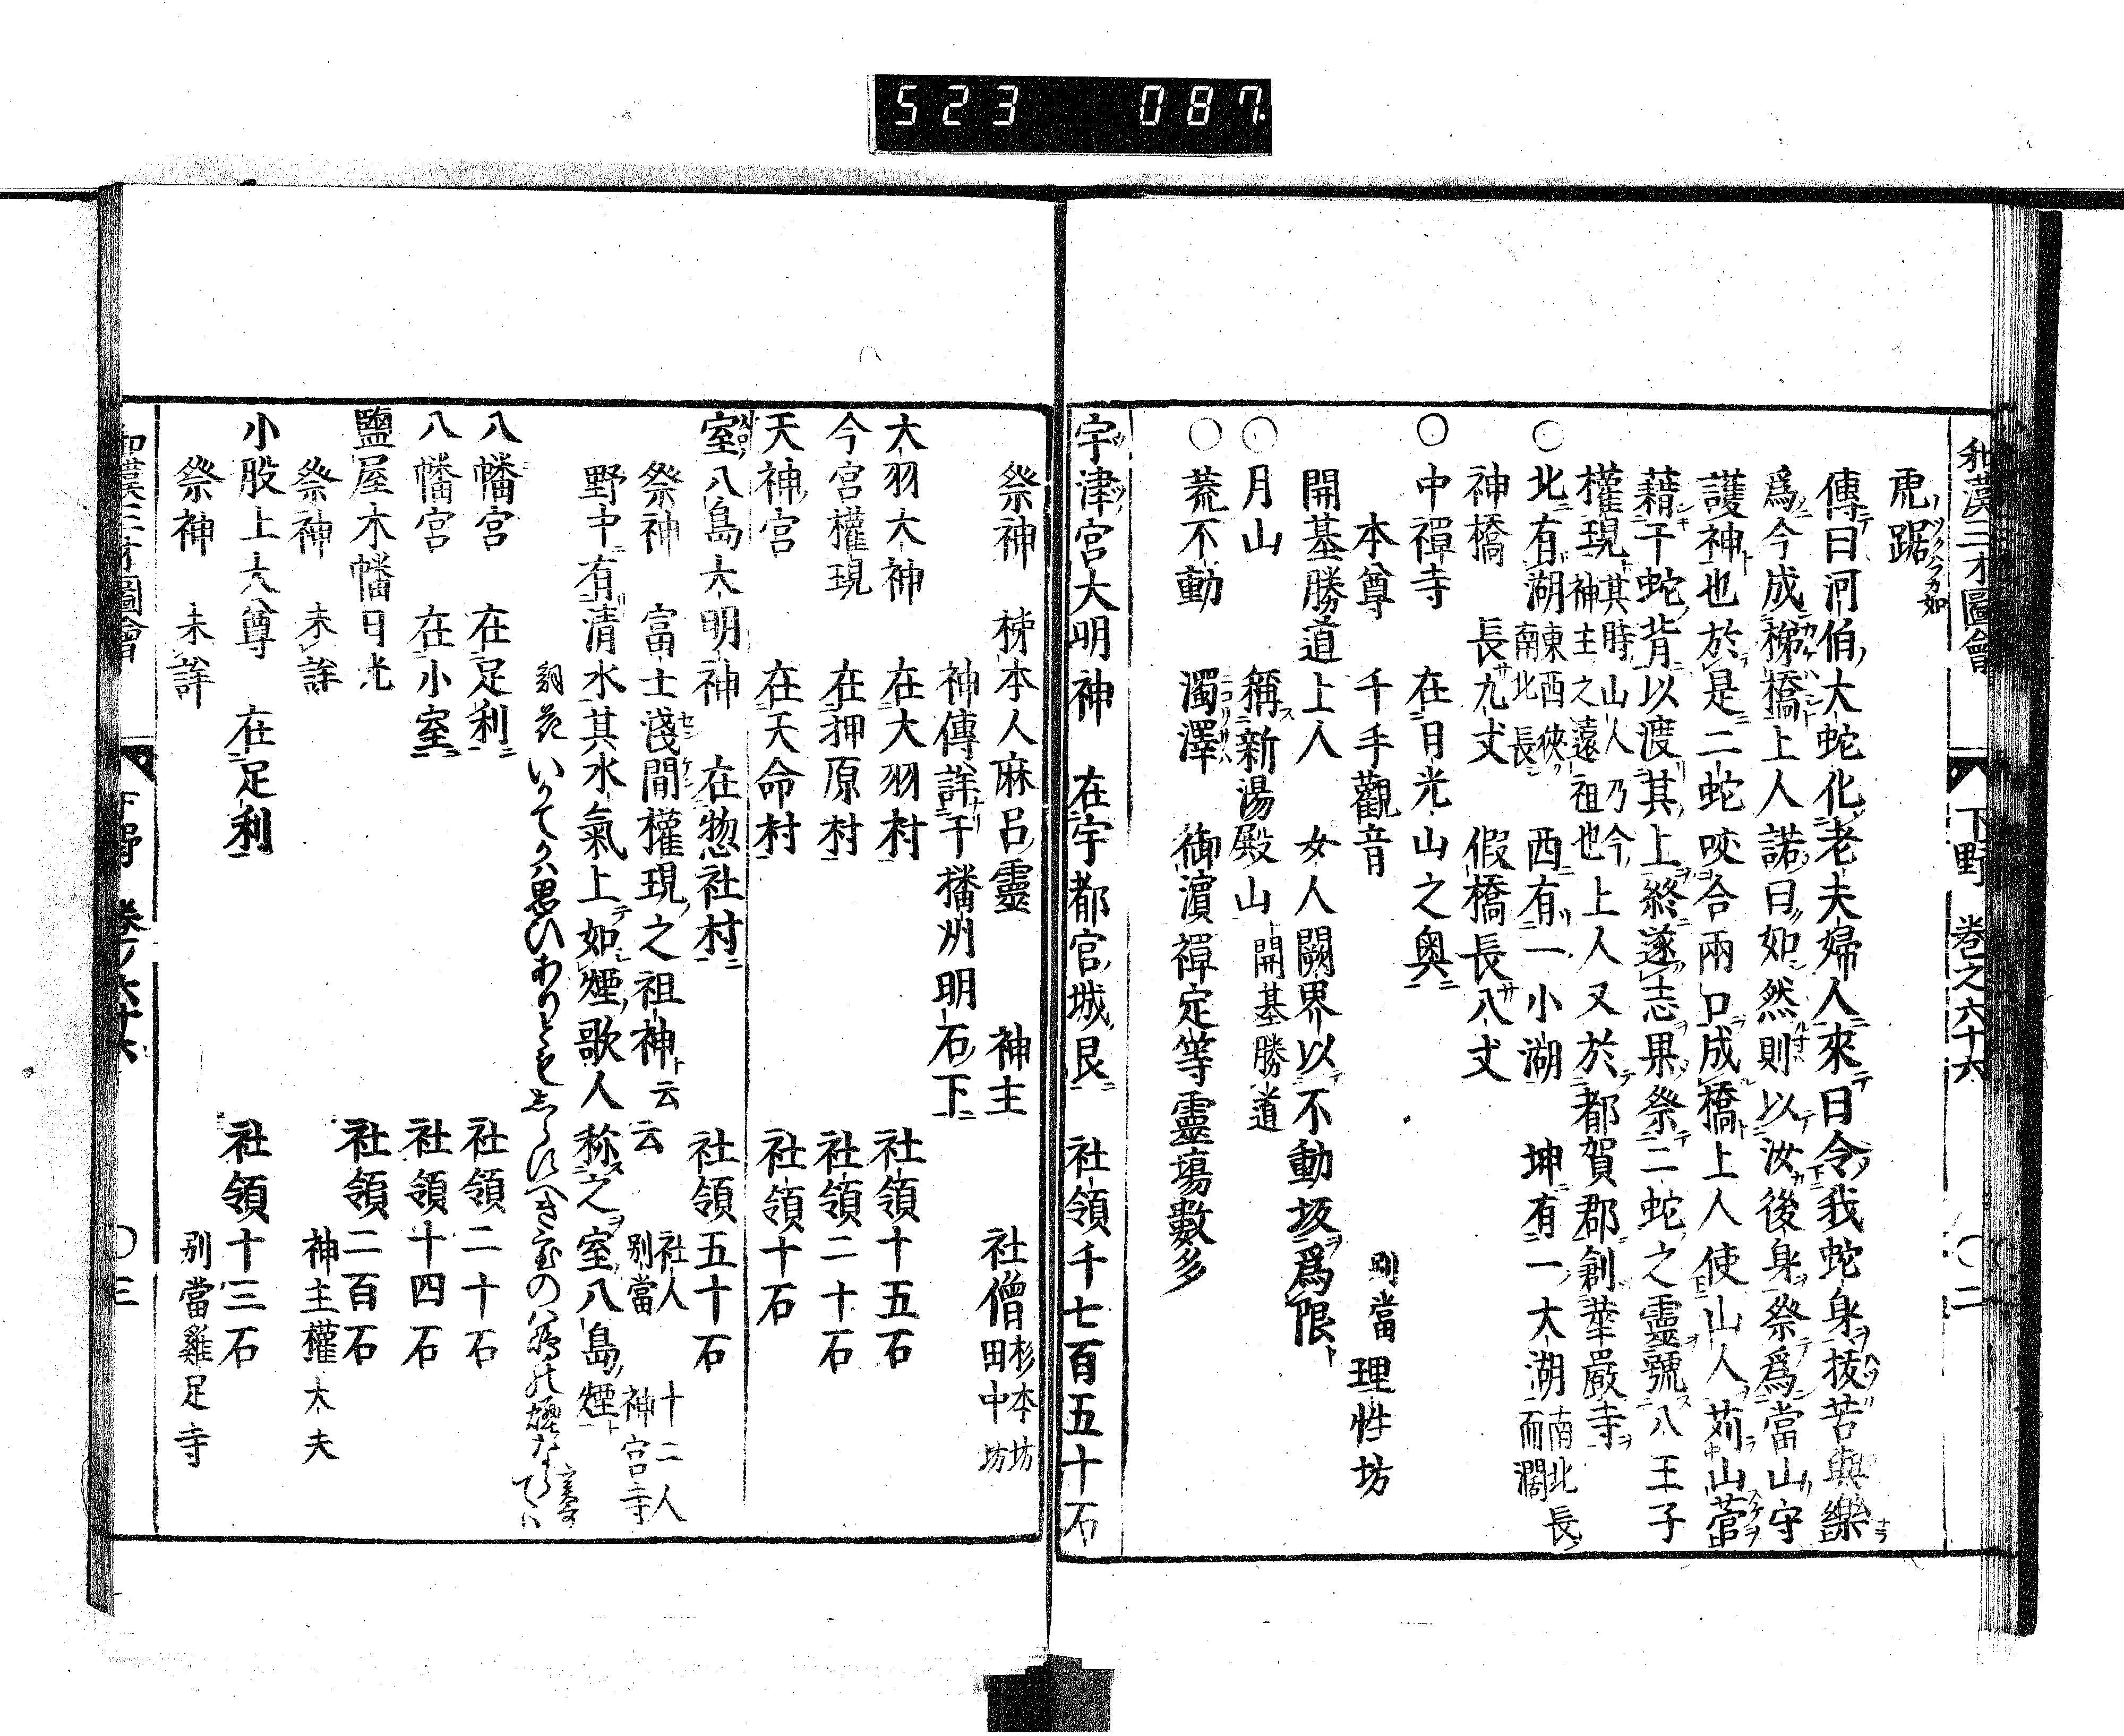 523 087
和漢三才圖會 下野 巻之六十六 〇二
虎踞
傳曰河伯大蛇化老夫婦人來曰令我蛇身抜苦與樂
爲今成梯橋上人諾曰如然則以汝後身祭爲當山守
護神也於是二蛇咬合兩口成橋上人使山人苅山菅
藉干蛇背以渡其上終遂志果祭二蛇之靈號八王子
權現其時山人乃今神主之遠祖也上人又於都賀郡創華嚴寺
〇北有湖東西狹南北長 西有一小湖 坤有一大湖南北長而濶
神橋 長九丈 假橋長八丈
〇中禪寺 在日光山之奥
本尊 千手觀音 別當 理性坊
開基勝道上人 女人闕界以不動坂爲限
〇月山 稱新湯殿山 開基勝道
〇荒不動 濁澤 御濵禪定等靈塲數多
宇津宮大明神 在宇都宮城艮 社領千七百五十石
祭神 柹本人麻呂靈 神主 社僧 杉本坊 田中坊
神傳詳干播州明石下
大羽大神 在大羽村 社領十五石
今宮權現 在押原村 社領二十石
天神宮 在天命村 社領十石
室八島大明神 在惣社村 社領五十石
祭神 富士淺間權現之祖神云云 社人 十二人 別當 神宮寺
野中有清水其水氣上如煙歌人称之室八島煙
詞花 いかてかは思ひありともしらすへき室の八島の煙ならては
八幡宮 在足利 社領二十石
八幡宮 在小室 社領十四石
鹽屋木幡日光 社領二百石
祭神 未詳 神主權大夫
小股上大八尊 在足利 社領十三石
祭神 未詳 別當雞足寺
和漢三才圖會 下野 巻ノ六十六 〇三